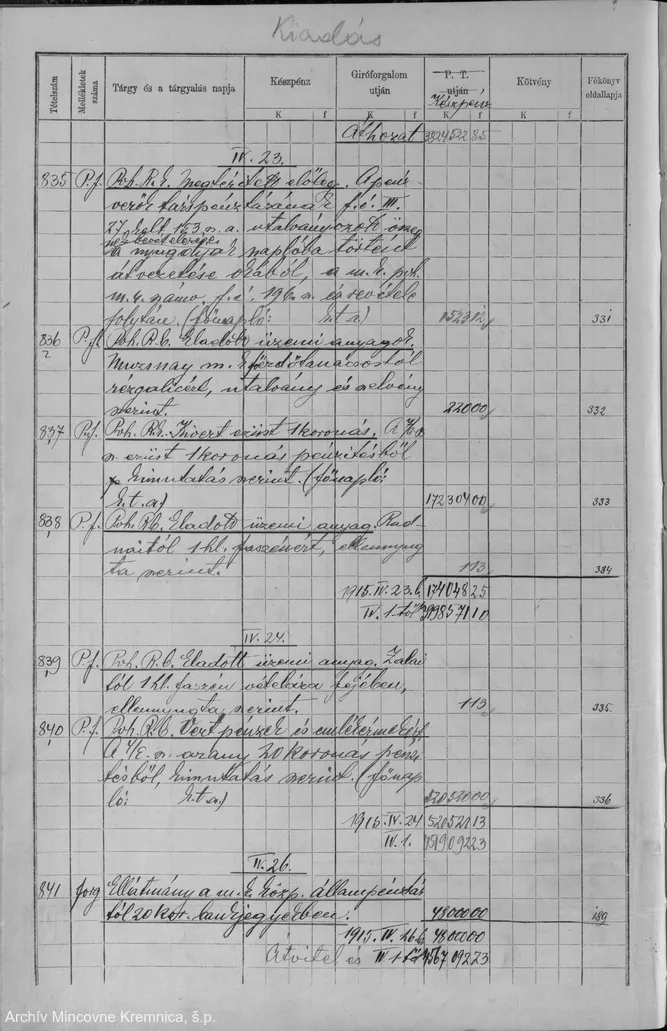 Kiadás
Tételszám
Mellékletek száma
Tárgy és a tárgyalás napja
Készpénz
Giróforgalom utján
P. T. utján
Készpénz
Kötvény
Főkönyv oldallapja
K f K f K f K f
Áthozat 39245 22 85
IV. 23.
835 P.f. Poh. R. É. Megtérített előleg. A pénz-
verő társpénztárának f. é. III.
27 kelt 153 n. a. utalványozott összeg
nek bevételezése
a nyugdíjak naplóba történt
átvezetése okából, a m. k. poh.
m. k. számv. f. é. 196. n.
folytán. (főnapló: k. t. a) 1523 12 331
836 P.f. Poh. R. C. Eladott üzemi anyagok.
rézgálicért, utalvány és szelvény
szerint. 220 00 332
837 P.f. Poh. R. É. Kivert ezüst 1 koronás.
n. ezüst 1 koronás pénzítésből
kimutatás szerint. (főnapló:
k. t. a) 172304 00 333
838 P.f. Poh. R. C. Eladott üzemi anyag. Rad-
naitól 1 hl. faszénért, ellennyug
ta szerint. 1 13 334
1915. IV. 23. 174048 25
IV. 1-től 39985 71 10
IV. 24.
839 P.f. Poh. R. C. Eladott üzemi anyag. Zalai
tól 1 hl. faszén vételára fejében,
ellennyugta szerint. 1 13 335.
840 P.f. Poh. R. C. Vert pénzek és emlékérmekért
n. arany 20 koronás pénz
tésből, kimutatás szerint. (főnap
ló: k. t. a.) 520520 00 336
1915. IV. 24 520521 13
IV. 1. 4519092 23
IV. 26.
841 forg Ellátmány a m. k. közp. állampénztár
tól 20 kor. bankjegyekben. 48000 00 189
1915. IV. 26. 48000 00
Átvitel és IV 1-től 4567092 23
Archív Mincovne Kremnica, š.p.